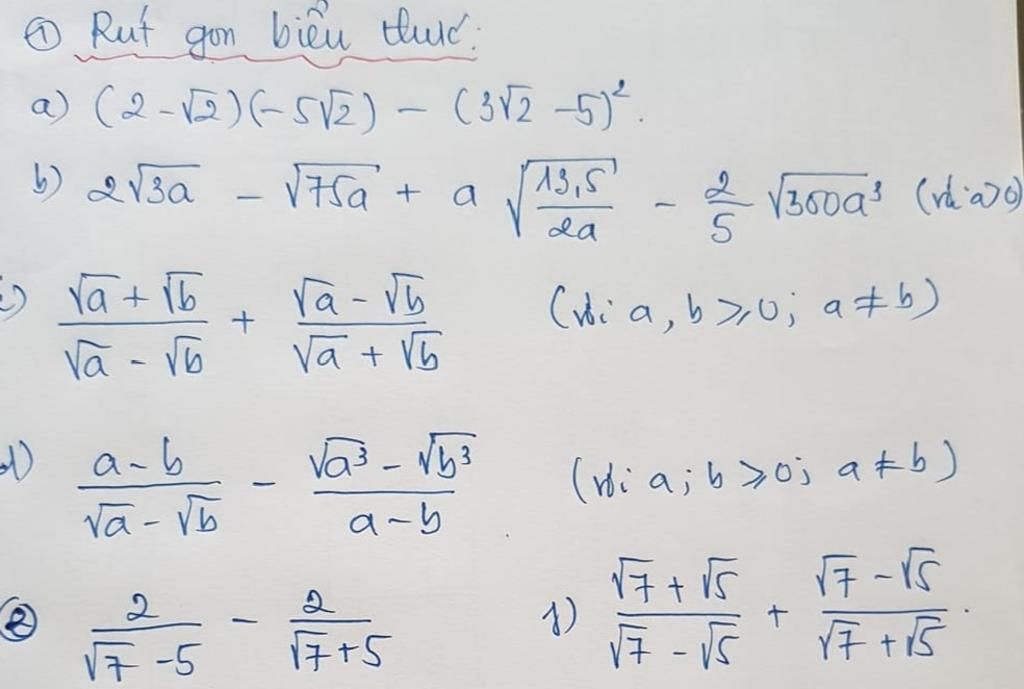 ① Rút gọn biểu thức:
a) (2-√2)(-5√2) - (3√2 -5)².
b) 2√3a - √75a + a √(13,5/2a) - 2/5 √300a³ (với a>0)
c) (√a + √b)/(√a - √b) + (√a - √b)/(√a + √b) (với a, b ⩾ 0; a ≠ b)
d) (a - b)/(√a - √b) - (√a³ - √b³)/(a - b) (với a; b ⩾ 0; a ≠ b)
② 2/(√7 - 5) - 2/(√7 + 5) f) (√7 + √5)/(√7 - √5) + (√7 - √5)/(√7 + √5).